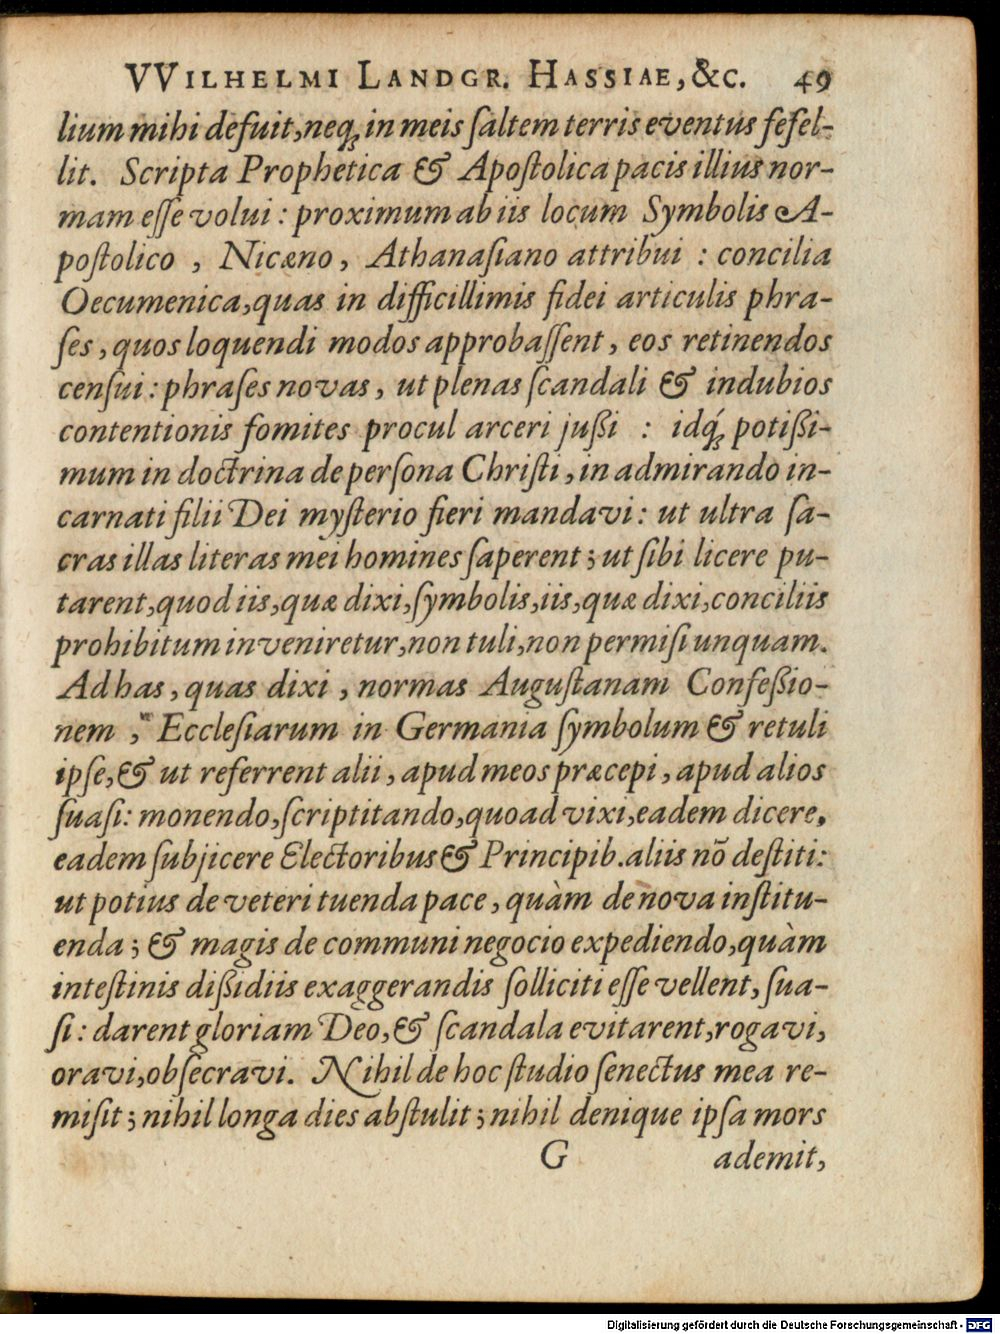 VVILHELMI LANDGR. HASSIAE, &C. 49
lium mihi defuit, neq́; in meis ſaltem terris eventus fefel-
lit. Scripta Prophetica & Apoſtolica pacis illius nor-
mam eſſe volui : proximum ab iis locum Symbolis A-
poſtolico , Nicæno, Athanaſiano attribui : concilia
Oecumenica, quas in difficillimis fidei articulis phra-
ſes, quos loquendi modos approbaſſent, eos retinendos
cenſui : phraſes novas, ut plenas ſcandali & indubios
contentionis fomites procul arceri juſſi : idq́; potiſſi-
mum in doctrina de perſona Chriſti, in admirando in-
carnati filii Dei myſterio fieri mandavi : ut ultra ſa-
cras illas literas mei homines ſaperent ; ut ſibi licere pu-
tarent, quod iis, quæ dixi, ſymbolis, iis, quæ dixi, conciliis
prohibitum inveniretur, non tuli, non permiſi unquam.
Ad has, quas dixi, normas Auguſtanam Confeſſio-
nem , Eccleſiarum in Germania ſymbolum & retuli
ipſe, & ut referrent alii, apud meos præcepi, apud alios
ſuaſi: monendo, ſcriptitando, quoad vixi, eadem dicere,
eadem ſubjicere Electoribus & Principib. aliis nõ deſtiti:
ut potius de veteri tuenda pace, quàm de nova inſtitu-
enda ; & magis de communi negocio expediendo, quàm
inteſtinis diſſidiis exaggerandis ſolliciti eſſe vellent, ſua-
ſi : darent gloriam Deo, & ſcandala evitarent, rogavi,
oravi, obſecravi. Nihil de hoc ſtudio ſenectus mea re-
miſit ; nihil longa dies abſtulit ; nihil denique ipſa mors
G ademit,
Digitalisierung gefördert durch die Deutsche Forschungsgemeinschaft - DFG